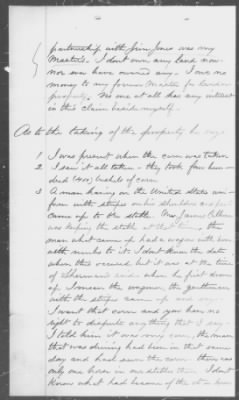 partnership with Jim Jones was my
Masters. I don't own any land now
nor ever have owned any. I owe no
money to any former Master for land or
property. No one at all has any interest
in this claim beside myself.
As to the taking of the property he says
1 I was present when the corn was taken
2 I saw it all taken - they took four hun-
dred (400) bushels of corn
3 A man having on the United States uni-
form with stripes on his shoulders
came up to the stable. Mr. James
was keeping the stable at that time, the
man what came up had a wagon with him
with mules to it. I dont know the date
when this occurred but it was at the time
of Sherman's raid when he first drove
up I mean the wagoner, the gentleman
with the stripes came up and say
I want that corn and you have no
right to dispute anything that I say.
I told him it was my corn, the man
that was driving had been in that same
day and had seen the corn. there was
only one horse in our stables then. I don't
know what had become of the other